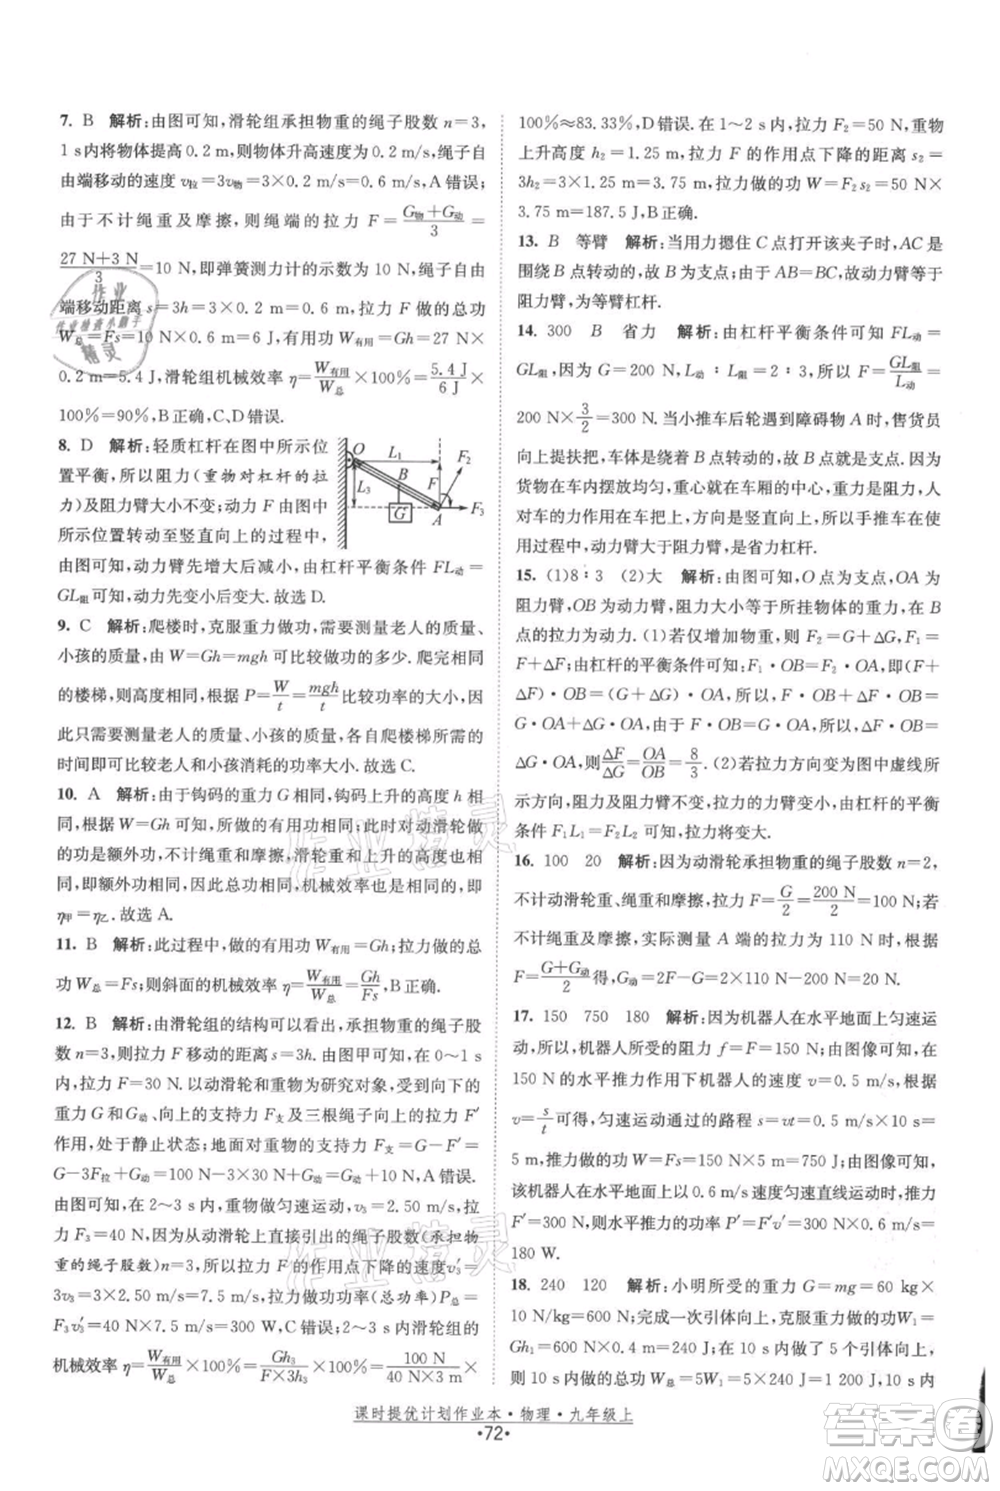 7. B 解析:由图可知,滑轮组承担物重的绳子股数 n=3,
1 s内将物体提高 0.2 m,则物体升高 0.2 m/s,绳子自
由端移动的速度 v拉=3v物=3×0.2 m/s=0.6 m/s,A错误;
由于不计绳重及摩擦,则绳端的拉力 F=(G物+G动)/3=
(27 N+3 N)/3=10 N,即弹簧测力计的示数为 10 N;绳子自由
端移动距离 s=3h=3×0.2 m=0.6 m,拉力 F 做的总功
W总=Fs=10 N×0.6 m=6 J,有用功 W有用=Gh=27 N×
0.2 m=5.4 J,滑轮组机械效率 η=W有用/W总×100%=5.4 J/6 J×
100%=90%,B正确,C、D错误.
8. D 解析:轻质杠杆在图中所示位
置平衡,所以阻力(重物对杠杆的拉
力)及阻力臂大小不变;动力 F 由图
中所示位置转动至竖直向上的过程中,
由图可知,动力臂先变大后减小,由杠杆平衡条件 FL动=
GL阻 可知,动力先变小后变大.故选 D.
O L₁ F₂
B F
L₃
G A F₃
9. C 解析:爬楼时,克服重力做功,需要测量老人的质量、
小孩的质量,由 W=Gh=mgh 可比较做功的多少.爬完相同
的楼梯,时间不同,根据 P=W/t=mgh/t 比较功率的大小,
需要测量老人的质量、小孩的质量、各自爬楼梯的时间,就
可比较老人和小孩消耗的功率大小.故选 C.
10. A 解析:由于钩码的重力 G 相同,钩码上升的高度 h 相
同,根据 W=Gh 可知,所做的有用功相同;对动滑轮做的
功为额外功,不计绳重和摩擦,滑轮重和上升的高度也相
同,即额外功相同,所以总功相同,机械效率也相同,即
η甲=η乙.故选 A.
11. B 解析:此过程中,做的有用功 W有用=Gh;拉力做的总
功 W总=Fs;则斜面的机械效率 η=W有用/W总=Gh/Fs,B正确.
12. B 解析:由滑轮组的结构可以看出,承担物重的绳子股
数 n=3,则拉力 F 移动的距离 s=3h.由图可知,在 0~1 s
内,拉力 F=30 N.取动滑轮和重物为研究对象,受到向下的
重力 G 和 G动、向上的支持力 F支及三根绳子向上的拉力 F′
作用,处于静止状态;地面对重物的支持力 F支=G-F′=
G-3F拉+G动=100 N-3×30 N+20 N=30 N,A错误.
由图可知,在 2~3 s 内,重物做匀速运动,v₃=2.50 m/s,
拉力 F₃=40 N,因为动滑轮上的绳子股数(承担物
重的绳子股数)n=3,所以拉力 F 的作用点下降的速度 v₃′=
3v₃=3×2.50 m/s=7.5 m/s,拉力做功功率(总功率)P总=
F₃v₃′=40 N×7.5 m/s=300 W,C错误;滑轮组的
机械效率 η=W有用/W总×100%=Gh₃/(F×3h₃)×100%=100 N/(40 N×3 m)×
100%≈83.33%,D错误.在 1~2 s 内,拉力 F₂=50 N,重物
上升高度 h₂=1.25 m,拉力 F 的作用点下降的距离 s₂=
3h₂=3×1.25 m=3.75 m,拉力做的功 W=F₂s₂=50 N×
3.75 m=187.5 J,B正确.
13. B 等臂 解析:当用力摁住 C 点打开该夹子时,AC 是
围绕 B 点转动的,所以 B 为支点;因为 AB=BC,故动力臂等于
阻力臂,为等臂杠杆.
14. 300 B 省力 解析:由杠杆平衡条件可知 FL动=
GL阻,因为 G=200 N,L动∶L阻=2∶3,所以 F=GL阻/L动=
200 N×3/2=300 N.当小推车后轮遇到障碍物 A 时,售货员
向上提扶把,车体与后轮与障碍物 A 的接触点为支点.因为
货物在车内摆放均匀,重心就在车厢的中心,所以阻力小于
人对车的力作用在车把上,方向是竖直向上的.所以手推车B
动力臂大于阻力臂,是省力杠杆.
15. (1)8∶3 (2)大 解析:由图可知,O为支点,OA 为
阻力臂,OB为动力臂,阻力大小等于所挂物体的重力,在 B
点的拉力为动力.(1)若仅增加物重,则 F₂=G+ΔG,F₁=
F+ΔF,由杠杆的平衡条件可知:F₁·OB=F₂·OA,即(F+
ΔF)·OB=(G+ΔG)·OA,所以,F·OB+ΔF·OB=
G·OA+ΔG·OA,由于 F·OB=G·OA,所以 ΔF·OB=
ΔG·OA,则 ΔF/ΔG=OA/OB=8/3.(2)若拉力方向沿图中虚线所
示,阻力、阻力臂和动力臂不变,拉力力臂变小,根据杠杆的平衡
条件 F₁L₁=F₂L₂ 可知,拉力变大.
16. 100 20 解析:因为动滑轮承担物重的绳子股数 n=2,
不计动滑轮重、绳重和摩擦,拉力 F=G/2=200 N/2=100 N;若
不计绳重及摩擦,实际测量 A 端的拉力为 110 N,根据
F=(G+G动)/2得,G动=2F-G=2×110 N-200 N=20 N.
17. 150 750 180 解析:因为机器人在水平地面上匀速运
动,所以,机器人所受的阻力 f=F=150 N;由图像可知,在
150 N 的水平推力作用下机器人的速度 v=0.5 m/s,根据
v=s/t得,匀速运动通过的路程 s=vt=0.5 m/s×10 s=
5 m,推力做的功 W=Fs=150 N×5 m=750 J;由图像可知,
该机器人在水平地面以 0.6 m/s 速度匀速直线运动时,推力
F′=300 N,水平推力的功率 P′=F′v′=300 N×0.6 m/s=
180 W.
18. 240 120 解析:小明所受的重力 G=mg=60 kg×
10 N/kg=600 N;完成一次引体向上,克服重力做的功W₁=
Gh₁=600 N×0.4 m=240 J;他在 10 s 内做了 5 个引体向
上,则 10 s 内做的总功 W总=5W₁=5×240 J=1 200 J,
课时提优计划作业本·物理·九年级上
·72·
作业
作业检查小助手
精灵
作业精灵
作业精灵
答案圈
MXQE.COM